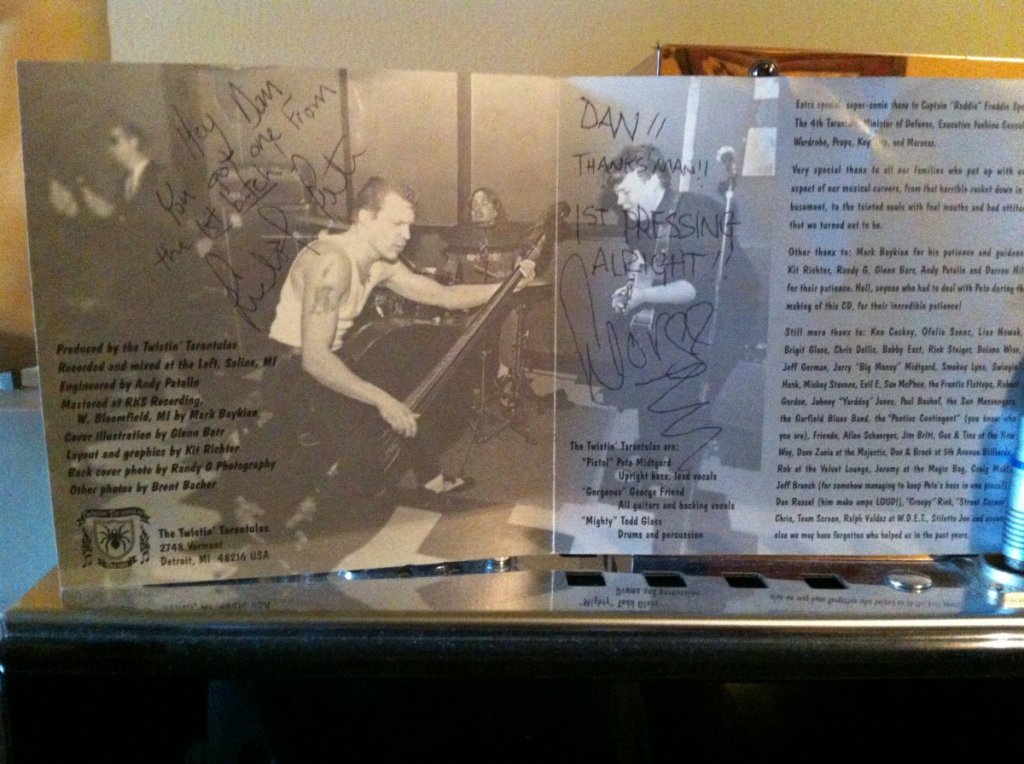 Hey Dan
You got
one From
the 1st batch
Pistol Pete
DAN!!
THANKS MAN!!
1ST PRESSING
ALRIGHT!!
Produced by the Twistin' Tarantulas
Recorded and mixed at the Loft, Saline, MI
Engineered by Andy Patalin
Mastered at RKS Recording,
W. Bloomfield, MI by Mark Baykian
Cover illustration by Glenn Barr
Layout and graphics by Kit Richter
Back cover photo by Randy G Photography
Other photos by Brent Bacher
The Twistin' Tarantulas
2748 Vermont
Detroit, MI 48216 USA
The Twistin' Tarantulas are:
"Pistol" Pete Midtgard
Upright bass, lead vocals
"Gorgeous" George Friend
All guitars and backing vocals
"Mighty" Todd Glass
Drums and percussion
Extra special super-sonic thanx to Captain "Raddie" Freddie
The 4th Tarantula, Minister of Defense, Executive Fashion
Wardrobe, Props, and
Very special thanx to all our families who put up with
aspect of our musical careers, from that horrible racket down in
basement, to the tainted souls with foul mouths and bad
that we turned out to be.
Other thanx to: Mark Baykian for his patience and
Kit Richter, Randy G, Glenn Barr, Andy Patalin and Darren
for their patience. Hell, anyone who had to deal with Pete during
making of this CD, for their incredible patience!
Still more thanx to: Ken Caskey, Ofelia Saenz, Lisa Nowak,
Brigit Glass, Chris Dellic, Bobby East, Rick Steiger, Deiana
Jeff Gorman, Jerry "Big Money" Midtgard, Smokey Lynx,
Hank, Mickey Stevens, Evil E, Sue McPhee, the Frantic Flattops,
Gordon, Johnny "Yarddog" Jones, Paul Bashof, the Sun Messengers,
the Garfield Blues Band, the "Pontiac Contingent" (you know who
you are), Friends, Allen Schaerges, Jim Britt, Gus & Tina at the New
Way, Dave Zania at the Majestic, Dan & Brock at 5th Avenue Billiards,
Rob at the Velvet Lounge, Jeremy at the Magic Bag, Craig
Jeff Branch (for somehow managing to keep Pete's bass in one piece!),
Dan Russel (him make amps LOUD!), "Creepy" Rick,
Chris, Team Scream, Ralph Valdez at W.D.E.T., Stiletto Jon and
else we may have forgotten who helped us in the past years.